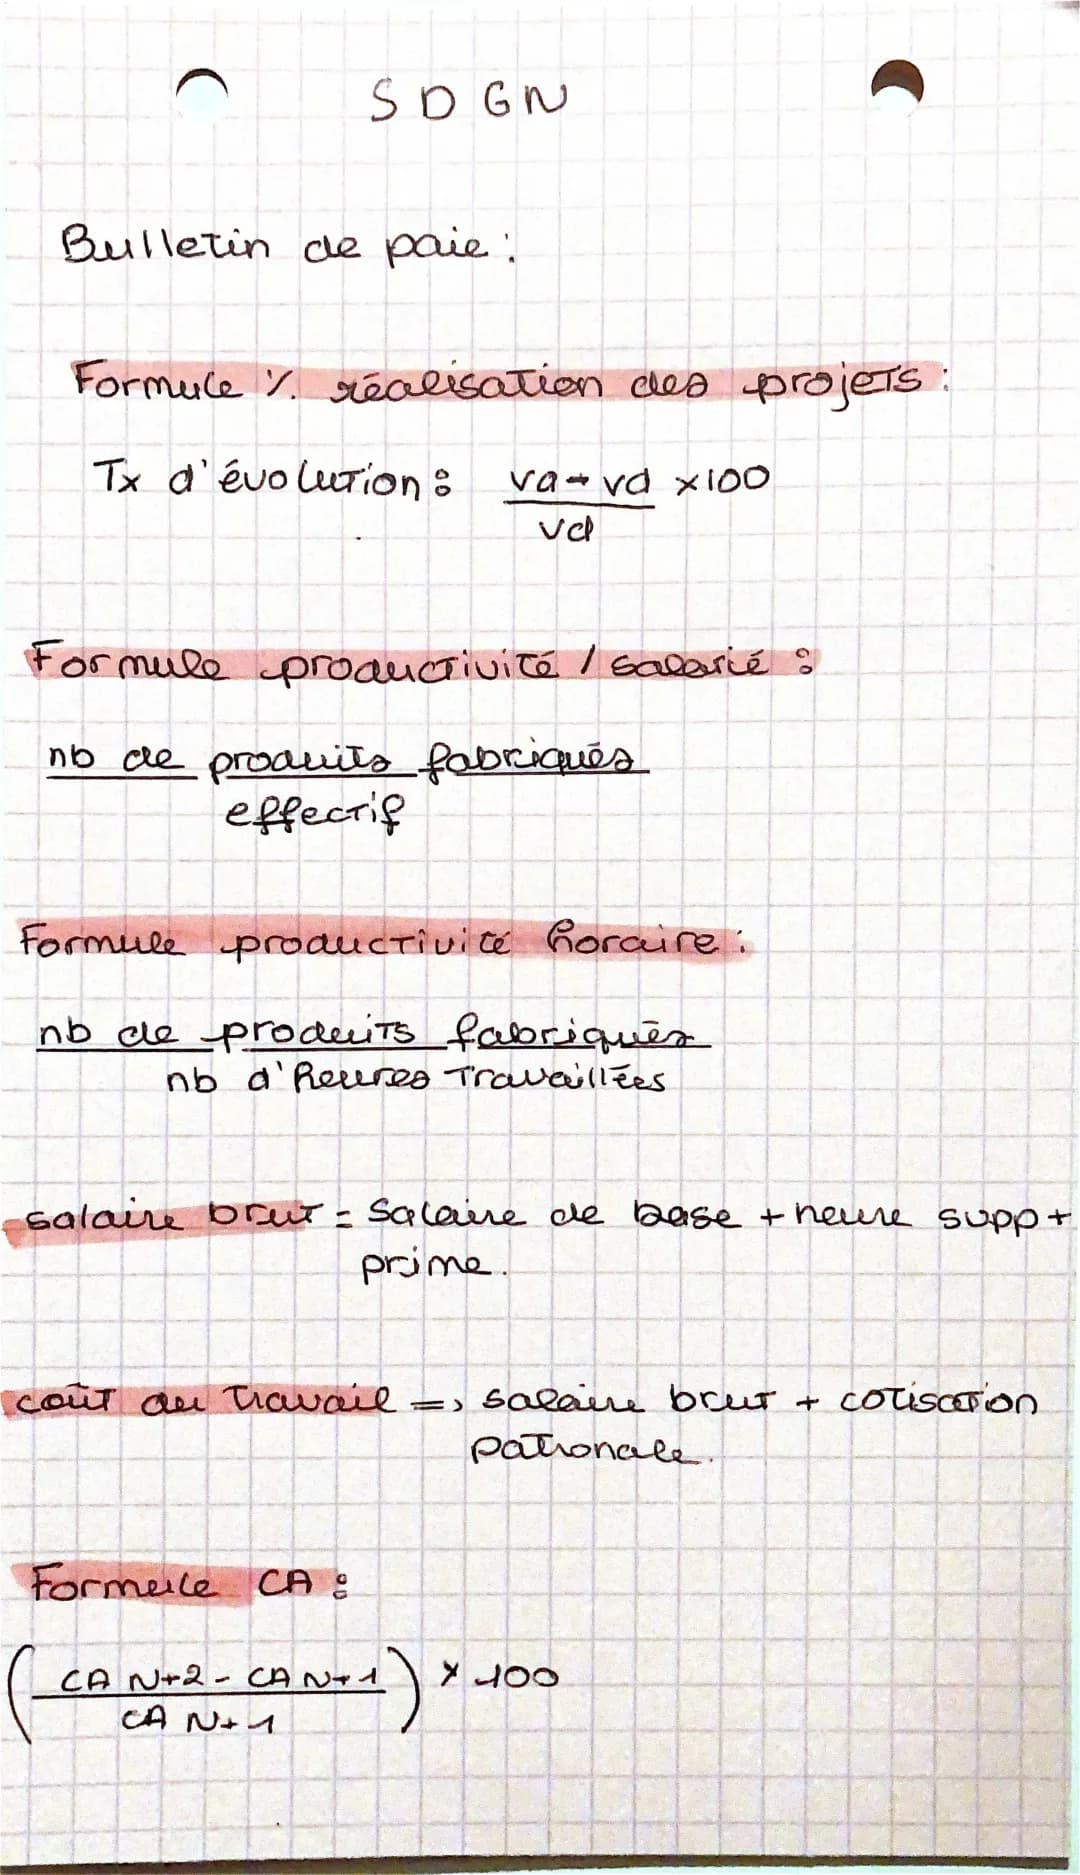 SDGN
Bulletin de paie :
Formule % réalisation des projets :
Tx d'évolution : va - vd x100
vd
Formule productivité / salarié :
nb de produits fabriqués
effectif
Formule productivité horaire :
nb de produits fabriqués
nb d'heures travaillées
salaire brut = Salaire de base + heure supp +
prime.
coût du travail => salaire brut + cotisation
patronale.
Formule CA :
( CA N+2 - CA N+1 ) x 100
CA N+1